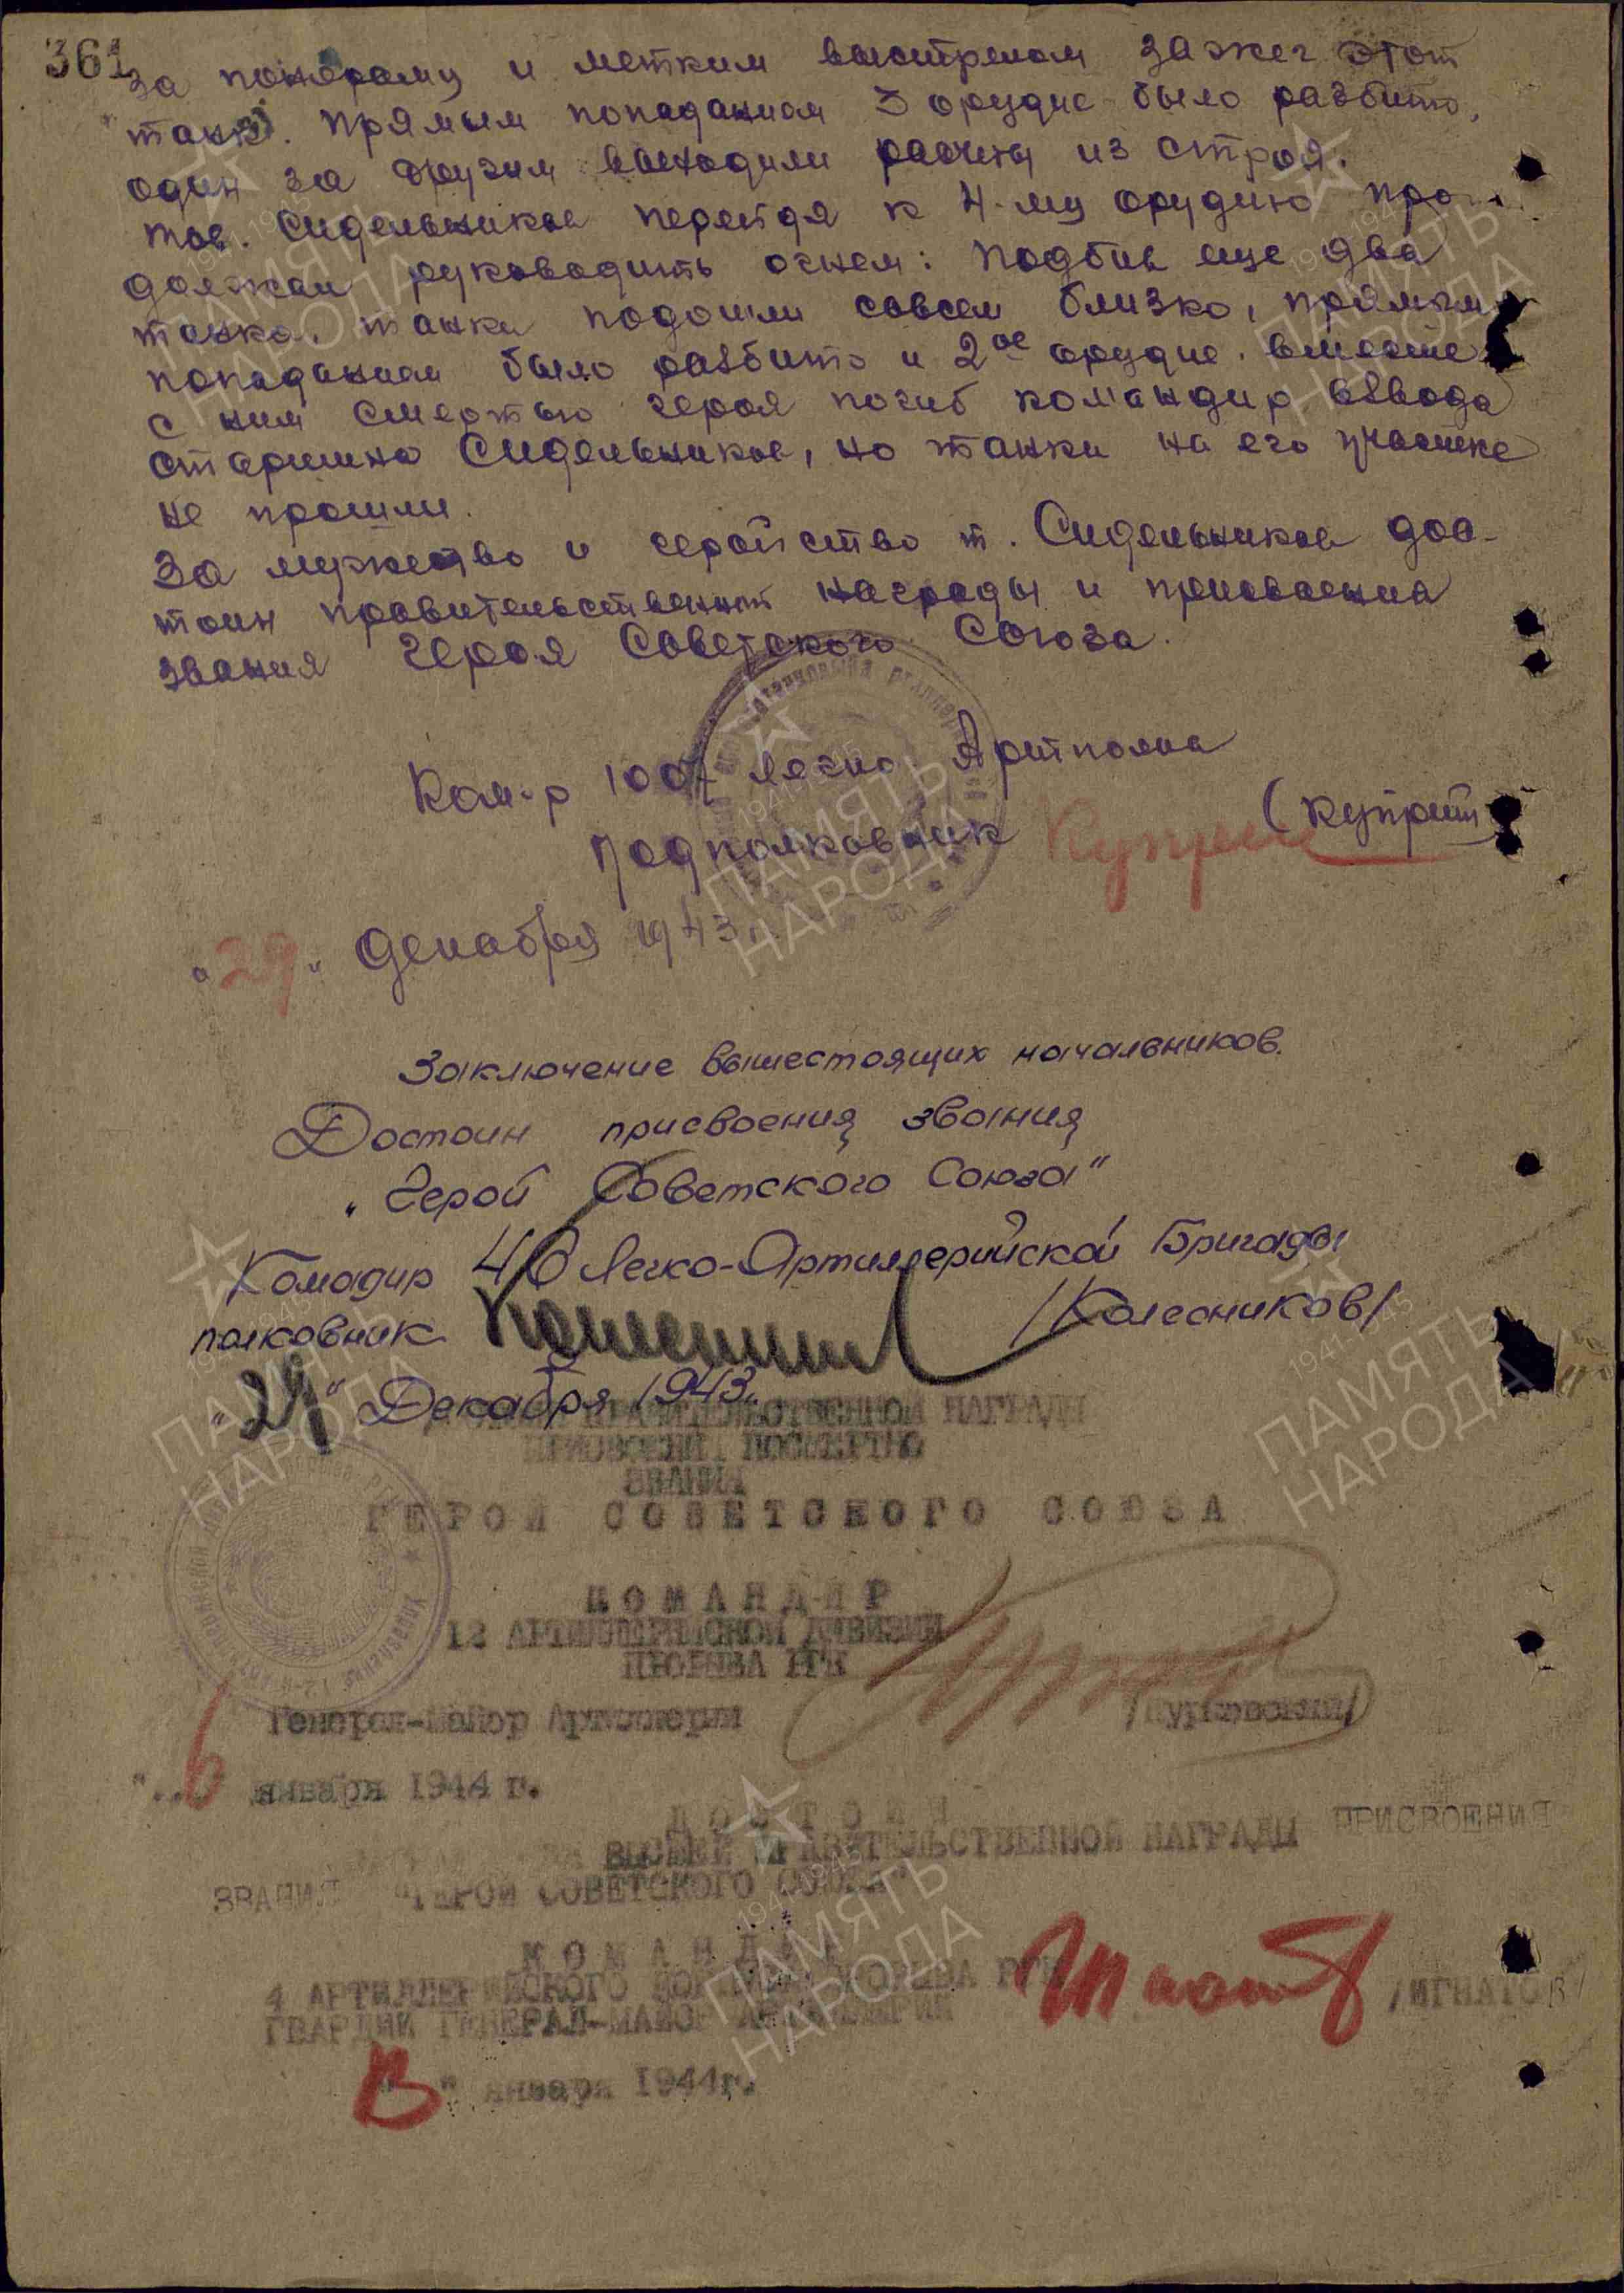 361
за понораму и метким выстрелом зажег этот
танк. Прямым попаданием 3 орудие было разбито,
один за другим выходили расчеты из строя.
тов. Сидельников перейдя к 4-му орудию про-
должал руководить огнем: подбив еще два
танка. танки подошли совсем близко, прямым
попаданием было разбито и 2ое орудие. вместе
с ним смертью героя погиб командир взвода
старшина Сидельников, но танки на его участке
не прошли.
За мужество и геройство т. Сидельников дос-
тоин правительственной награды и присвоения
звания Героя Советского Союза.
Ком-р 1007 легко Артполка
Подполковник Куприн (Куприн
"29" декабря 1943
Заключение вышестоящих начальников.
Достоин присвоения звания
"Герой Советского Союза"
Комадир 46 Легко-Артиллерийской Бригады
полковник /Колесников/
"29" Декабря 1943г.
ПРАВИТЕЛЬСТВЕННОЙ НАГРАДЫ
ПРИСВОЕНИЯ ПОСМЕРТНО
ЗВАНИЯ
ГЕРОЙ СОВЕТСКОГО СОЮЗА
КОМАНДИР
12 АРТИЛЛЕРИЙСКОЙ ДИВИЗИИ
ПРОРЫВА РГК
Генерал-Майор Артиллерии /Курковский/
"6 января 1944 г.
ДОСТОИН
ВЫСШЕЙ ПРАВИТЕЛЬСТВЕННОЙ НАГРАДЫ ПРИСВОЕНИЯ
ЗВАНИЯ "ГЕРОЙ СОВЕТСКОГО СОЮЗА"
КОМАНДИР
4 АРТИЛЛЕРИЙСКОГО КОРПУСА ПРОРЫВА РГК
ГВАРДИИ ГЕНЕРАЛ-МАЙОР АРТИЛЛЕРИИ /ИГНАТОВ/
" января 1944г.
1941-1945
ПАМЯТЬ
НАРОДА